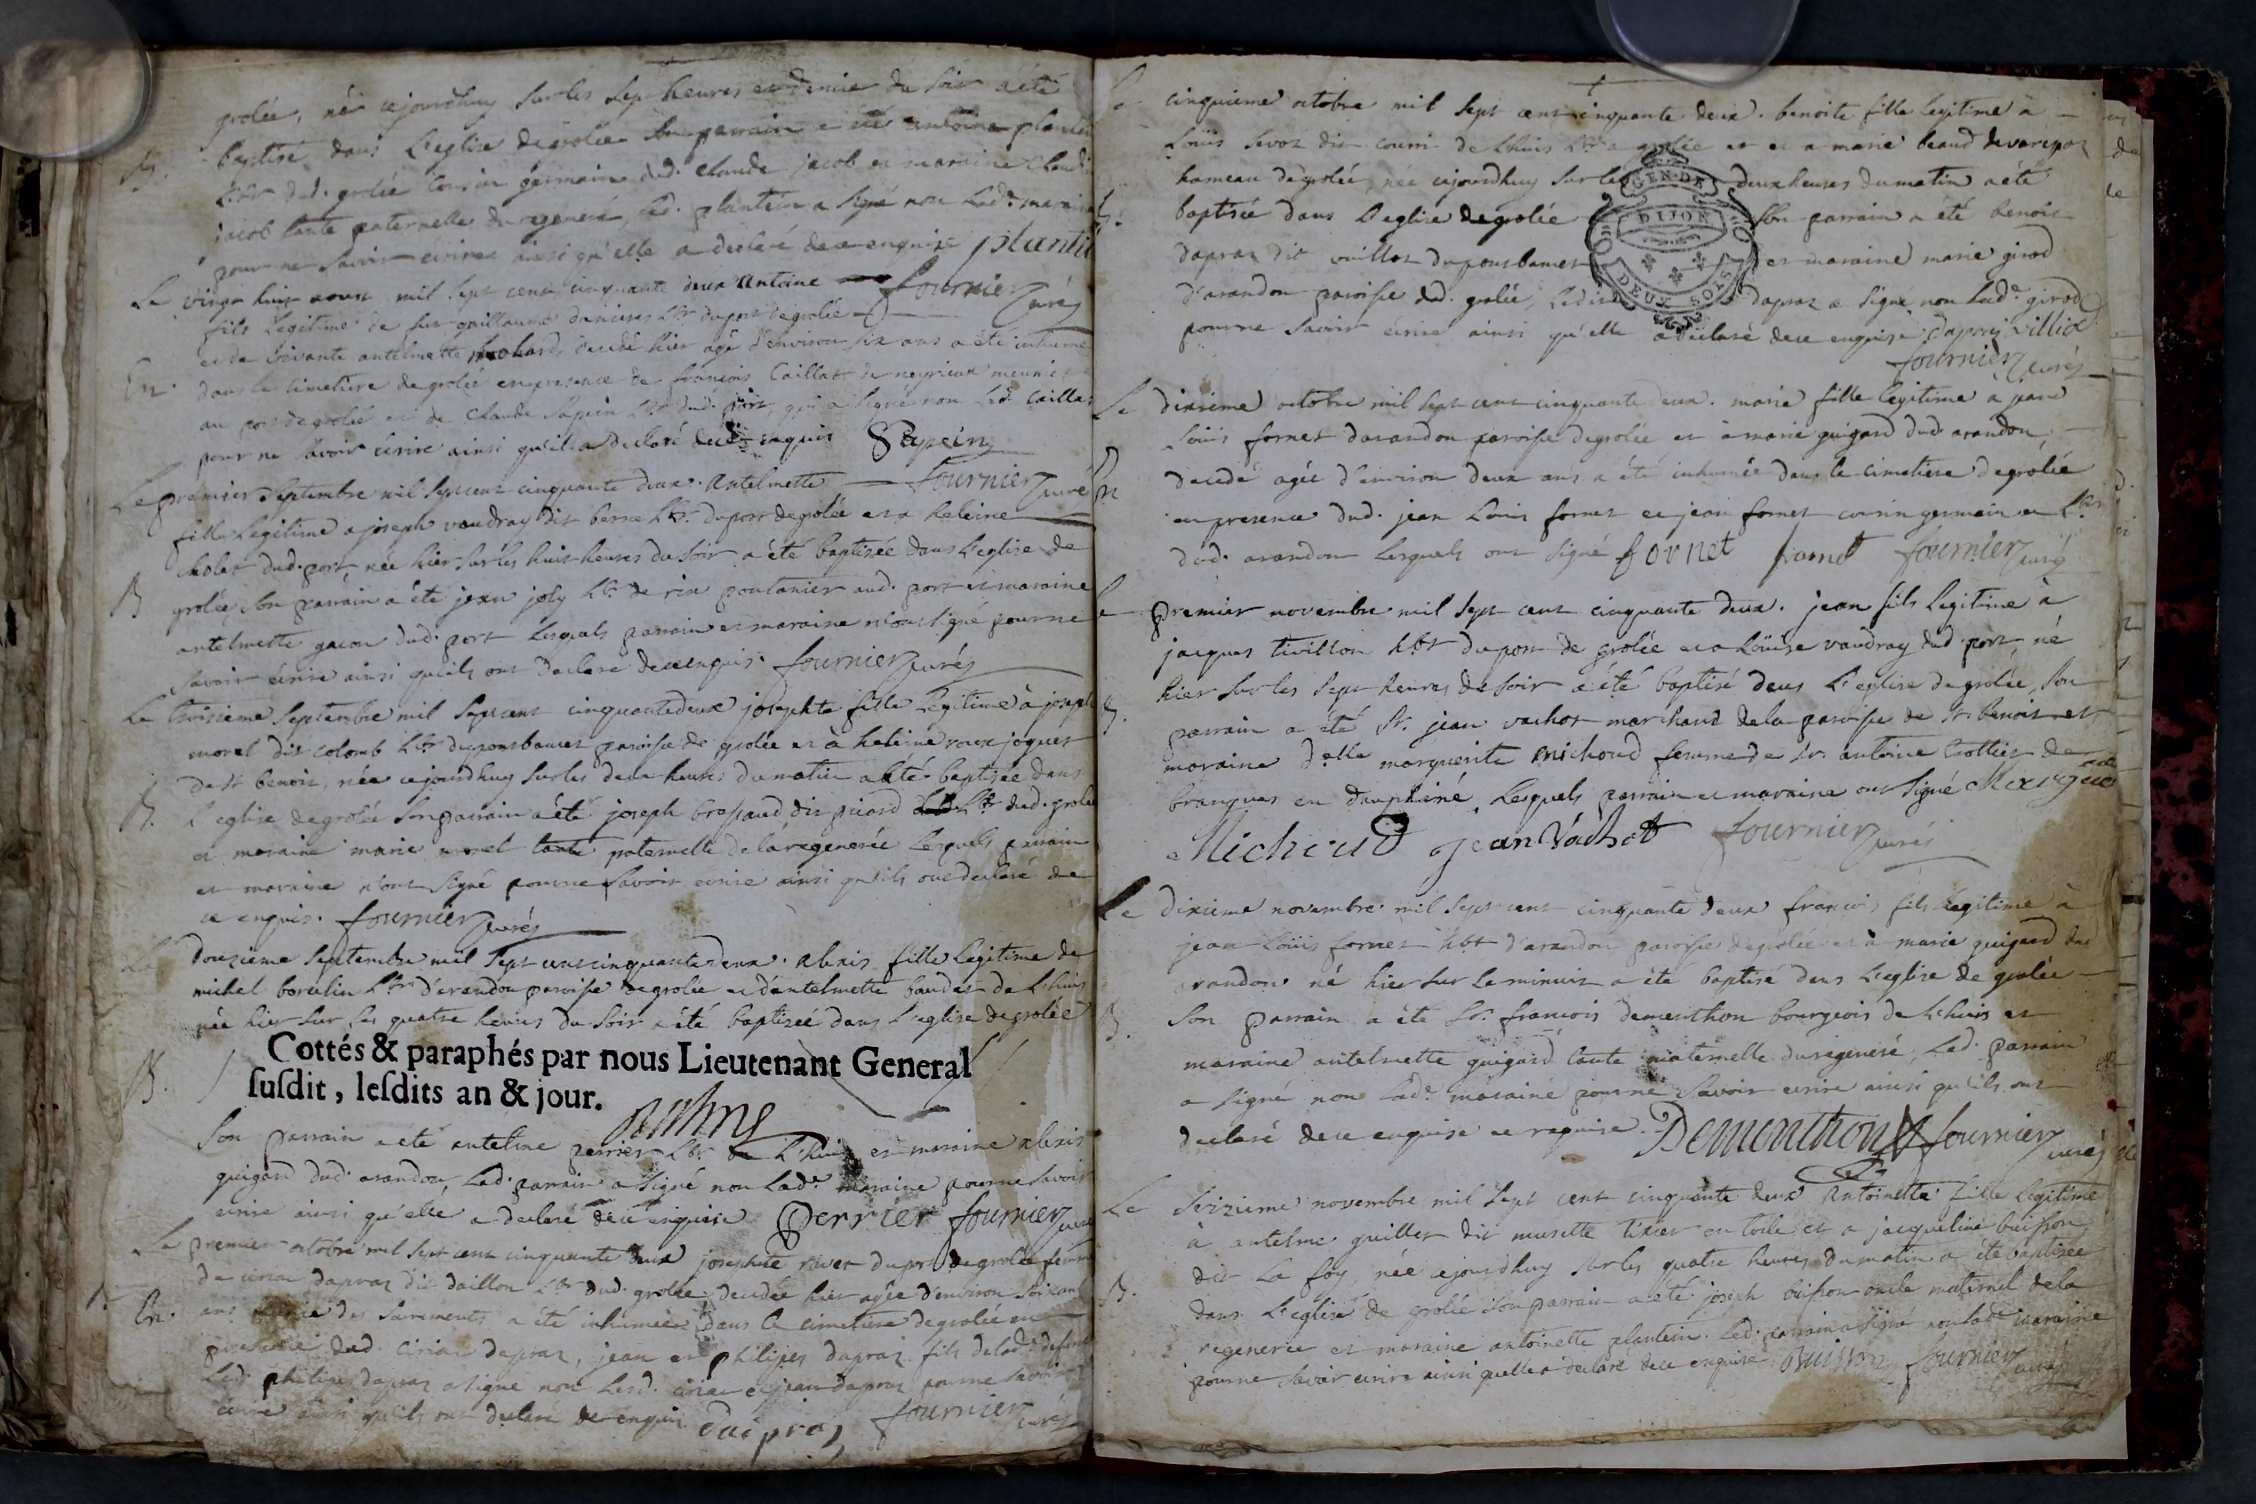 grolée, né cejourdhuy sur les sept heures et demie du soir a été
B. baptisé dans L'eglise de grolée son parrain a été antoine plantin
hbt dud. grolée cousin germain dud. claude jacob et maraine claudi
jacob tante paternelle du regeneré, led. plantin a signé non lade. maraine
pour ne savoir ecrire ainsi qu'elle a declaré de ce enquise plantin
Le vingt huit aoust mil sept cent cinquante deux Antoine fournier curé
fils Legitime de feu guillaume hbt du port de grolée
et de vivante antelmette decedé hier agé d'environ six ans a été inhumé
En. dans le cimetiere de grolée en presence de francois Caillat de neyrieux meunier
au port de grolée et de claude Sapein hbt dud. port, qui a signé non led. Caillat
pour ne savoir ecrire ainsi qu'il a declaré de ce enquis Sapein
Le premier Septembre mil sept cent cinquante deux. Antelmette fournier curé
fille Legitime a joseph vaudray dit berne hbt du port de grolée et a heleine
cholet dud. port, née hier sur les huit heures du soir a été baptisée dans L'eglise de
B grolée, son parrain a été jean joly hbt de rix pontanier aud. port et maraine
antelmette gacon dud. port Lesquels parrain et maraine n'ont signé pour ne
savoir ecrire ainsi qu'ils ont declaré de ce enquis. fournier curé
Le troisieme Septembre mil sept cent cinquante deux josephte fille Legitime à joseph
morel dit colomb hbt du pontbancet paroisse de grolée et à heleine roux joguet
de st benoit, née cejourdhuy sur les deux heures du matin a été baptisée dans
B. L'eglise de grolée son parrain a été joseph bressaud dit picard hbt dud. grolée
et maraine marie morel tante paternelle de la regenerée Lesquels parrain
et maraine n'ont signé pour ne savoir ecrire ainsi qu'ils ont declaré de
ce enquis. fournier curé
Le douzieme Septembre mil sept cent cinquante deux. alexis fille Legitime de
michel borcelin hbt d'arandon paroisse de grolée et d'antelmette baudet de Lhuis
née hier sur les quatre heures du soir a été baptisée dans L'eglise de grolée
Cottés & paraphés par nous Lieutenant General
B. susdit, lesdits an & jour.
Son parrain a été antelme perrier hbt de L'huis et maraine alexis
guigard dud. arandon, Led. parrain a signé non Lade. maraine pour ne savoir
ecrire ainsi qu'elle a declaré de ce enquise Perrier fournier curé
Le premier octobre mil sept cent cinquante deux josephte rivet du port de grolée femme
de ciriac dapraz dit daillon hbt dud. grolée decedée hier agée d'environ soixante
En. ans munie des sacrements a été inhumée dans le cimetiere de grolée en
presence dud. ciriac dapraz, jean et philipes dapraz fils de lade. defunte
Led. philipes dapraz a signé non lesd. ciriac et jean dapraz pour ne savoir
ecrire ainsi qu'ils ont declaré de ce enquis daipraz fournier curé
Le cinquieme octobre mil sept cent cinquante deux. benoite fille legitime à
Loüis Sivoz dit courri de Lhuis hbt a grolée et a marie beaud de varepoz
hameau de grolée, née cejourdhuy sur les deux heures du matin a été
B. baptisée dans L'eglise de grolée Son parrain a été benoit
dapraz dit vuillot du pontbancet et maraine marie girod
d'arandon paroisse dud. grolée, Ledit dapraz a signé non lade. girod
pour ne savoir ecrire ainsi qu'elle a declaré de ce enquise
GEN. DE
DIJON
DEUX SOLS
fournier curé
Le dixieme octobre mil sept cent cinquante deux. marie fille legitime à jean
Loüis fornet d'arandon paroisse de grolée et à marie guigard dud. arandon,
En decedé agée d'environ deux ans a été inhumée dans le cimetiere de grolée
en presence dud. jean Louis fornet et jean fornet cousin germain et hbt
dud. arandon Lesquels ont signé fornet fornet fournier curé
Le premier novembre mil sept cent cinquante deux. jean fils Legitime à
jacques tivillon hbt du port de grolée et a Loüise vaudray dud. port, né
hier sur les sept heures du soir a été baptisé dans L'eglise de grolée, son
B. parrain a été Sr. jean vachot marchand de la paroisse de st. benoit et
maraine delle marguerite michoud femme de Sr. antoine trottier de
brangues en dauphiné, Lesquels parrain et maraine ont signé
Micheud jean Vachot fournier curé
Le dixieme novembre mil sept cent cinquante deux francois fils Legitime à
jean Loüis fornet hbt d'arandon paroisse de grolée et à marie guigard dud.
arandon né hier sur le minuit a été baptisé dans L'eglise de grolée
B. Son parrain a été Sr. francois demonthon bourgeois de Lhuis et
maraine antelmette guigard tante maternelle du regeneré, Led. parrain
a signé non lade. maraine pour ne savoir ecrire ainsi qu'ils ont
declaré de ce enquise et requise. Demonthon fournier curé
Le Seizieme novembre mil sept cent cinquante deux Antoinette fille Legitime
à antelme guillet dit musette tixier en toile et a jacqueline buisson
dit La foy, née cejourdhuy sur les quatre heures du matin a été baptisée
B. dans L'eglise de grolée son parrain a été joseph buisson oncle maternel de la
regenerée et maraine antoinette plantein. Led. parrain a signé non lade maraine
pour ne savoir ecrire ainsi quelle a declaré de ce enquise Buisson fournier curé